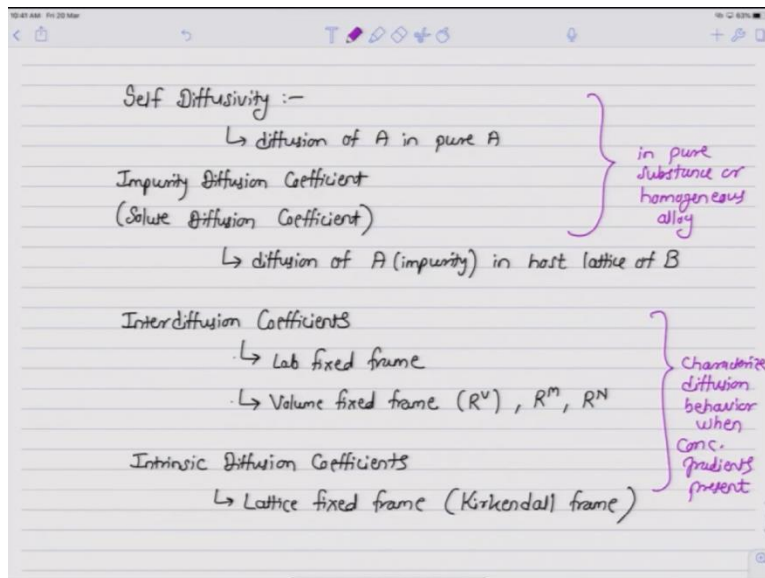 10:41 AM Fri 20 Mar
63%
Self Diffusivity :-
↳ diffusion of A in pure A
Impurity Diffusion Coefficient
(Solute Diffusion Coefficient)
↳ diffusion of A (impurity) in host lattice of B
in pure
substance or
homogeneous
alloy
Interdiffusion Coefficients
↳ Lab fixed frame
↳ Volume fixed frame (Rⱽ) , Rᴹ, Rᴺ
Intrinsic Diffusion Coefficients
↳ Lattice fixed frame (Kirkendall frame)
Characterize
diffusion
behavior
when
Conc.
gradients
present